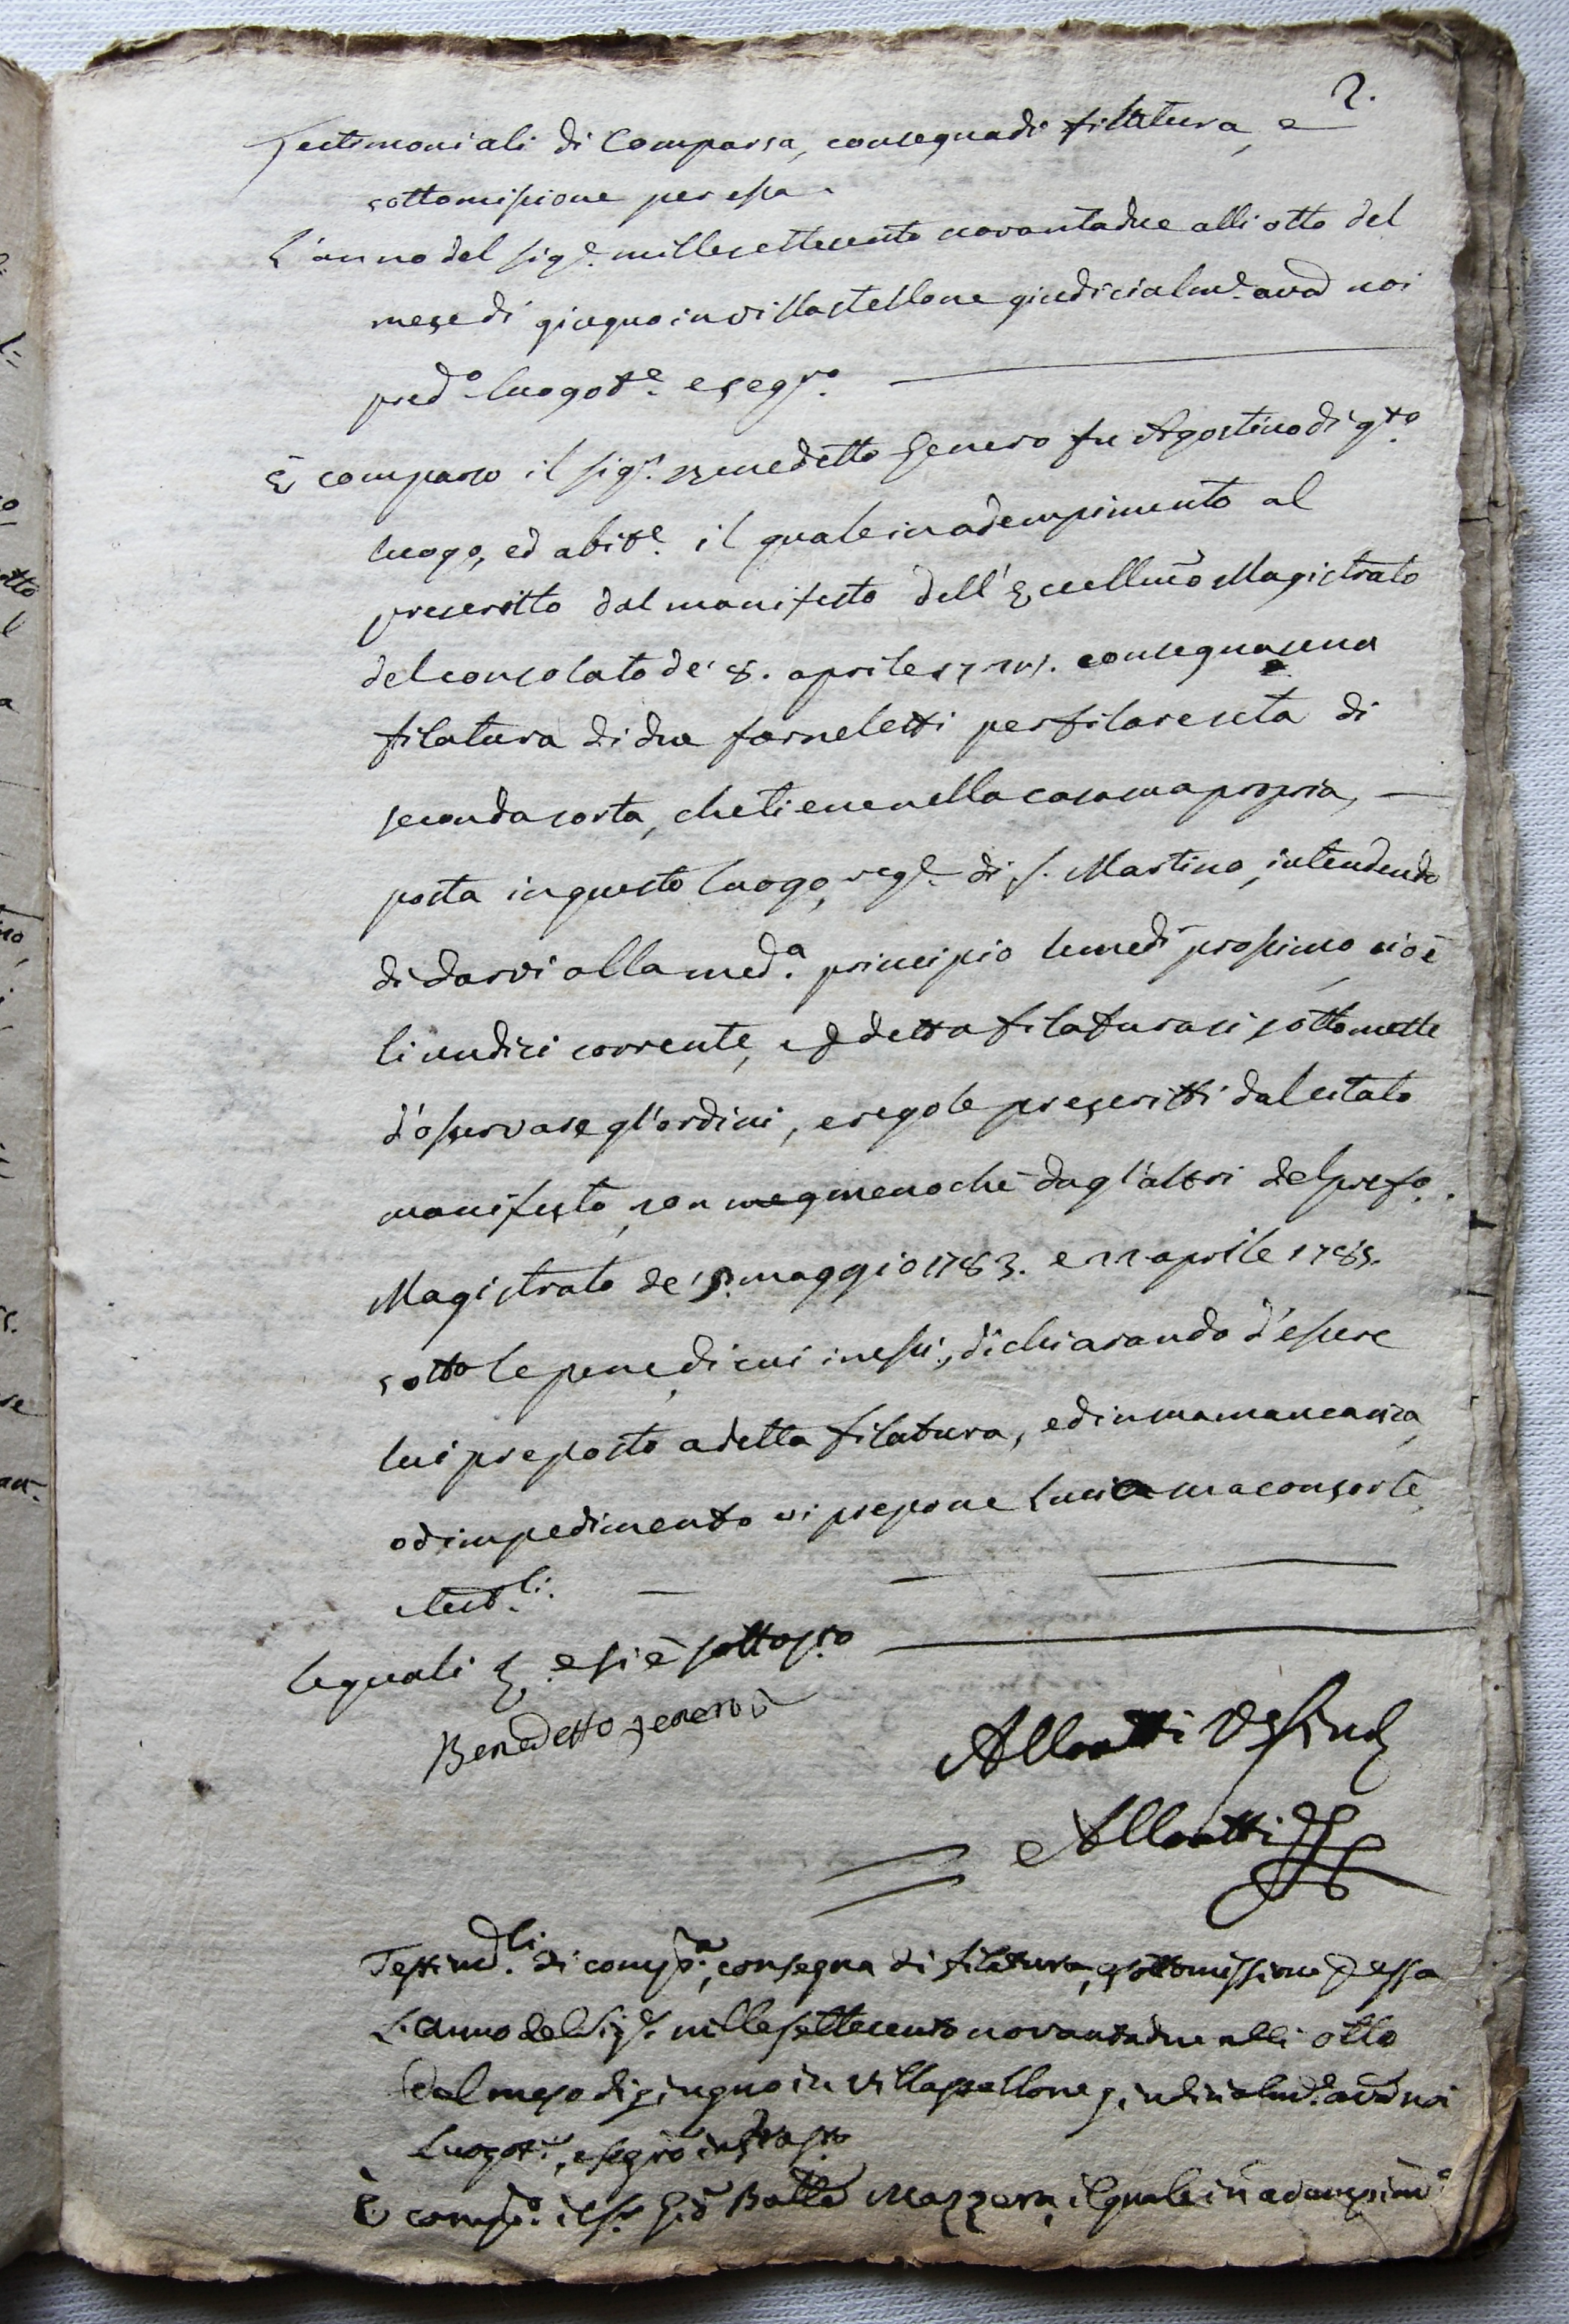 2.
Testimoniali di Comparsa, consegna di filatura, e
sottomissione per essa.
L'anno del sig.e millesettecento novantadue alli otto del
mese di giugno in villastellone giudicialm.e avad noi
pred.o luogot.e e seg.ro
È comparso il sig.r Benedetto Genero fu Agostino di q.to
luogo, ed abit.e il quale in adempimento al
prescritto dal manifesto dell'Eccellmo Magistrato
del consolato de' 8. aprile consegna una
filatura di due forneletti per filare seta di
seconda sorta, che tiene nella casa sua propria,
posta in questo luogo, reg.e di s. Martino, intendendo
di darvi alla med.a principio lunedì prossimo cioè
li undici corrente, e detta filatura si sottomette
d'osservare gl'ordini, e regole prescritti dal citato
manifesto, non meno che dagl'altri del pref.o
Magistrato de' maggio 1783. e 11 aprile 1785.
sotto le pene, di cui in essi, dichiarando d'essere
lui preposto a detta filatura, ed in sua mancanza,
od impedimento vi prepone Lucia sua consorte
test.li
le quali e si è sottos.to
Benedetto genero
Alloatti
Alloatti
Testim.li di comp.a, consegna di filatura, e sottomissione p essa
L'anno del Sig.e mille settecento novantadue alli otto
del mese di giugno in villastellone giudicialm.e avad noi
Luogot.e, e segro infrasto
È comp.o il s.r Gio Batta Mazzera, il quale in adempim.o